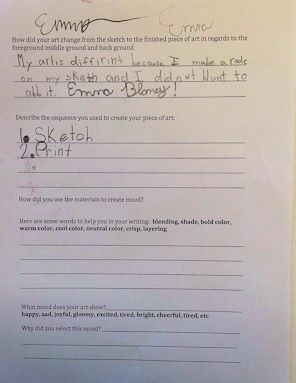 Emma Emma
How did your art change from the sketch to the finished piece of art in regards to the
foreground middle ground and back ground
My artis diffirint because I make a
on my sketh and I did not Wunt to
add it. Emma Blaney!
Describe the sequence you used to create your piece of art:
1. Sketch
2. Print
3.
How did you use the materials to create mood?
Here are some words to help you in your writing: blending, shade, bold color,
warm color, cool color, neutral color, crisp, layering
What mood does your art show?
happy, sad, joyful, gloomy, excited, tired, bright, cheerful, tired, etc
Why did you select this mood?